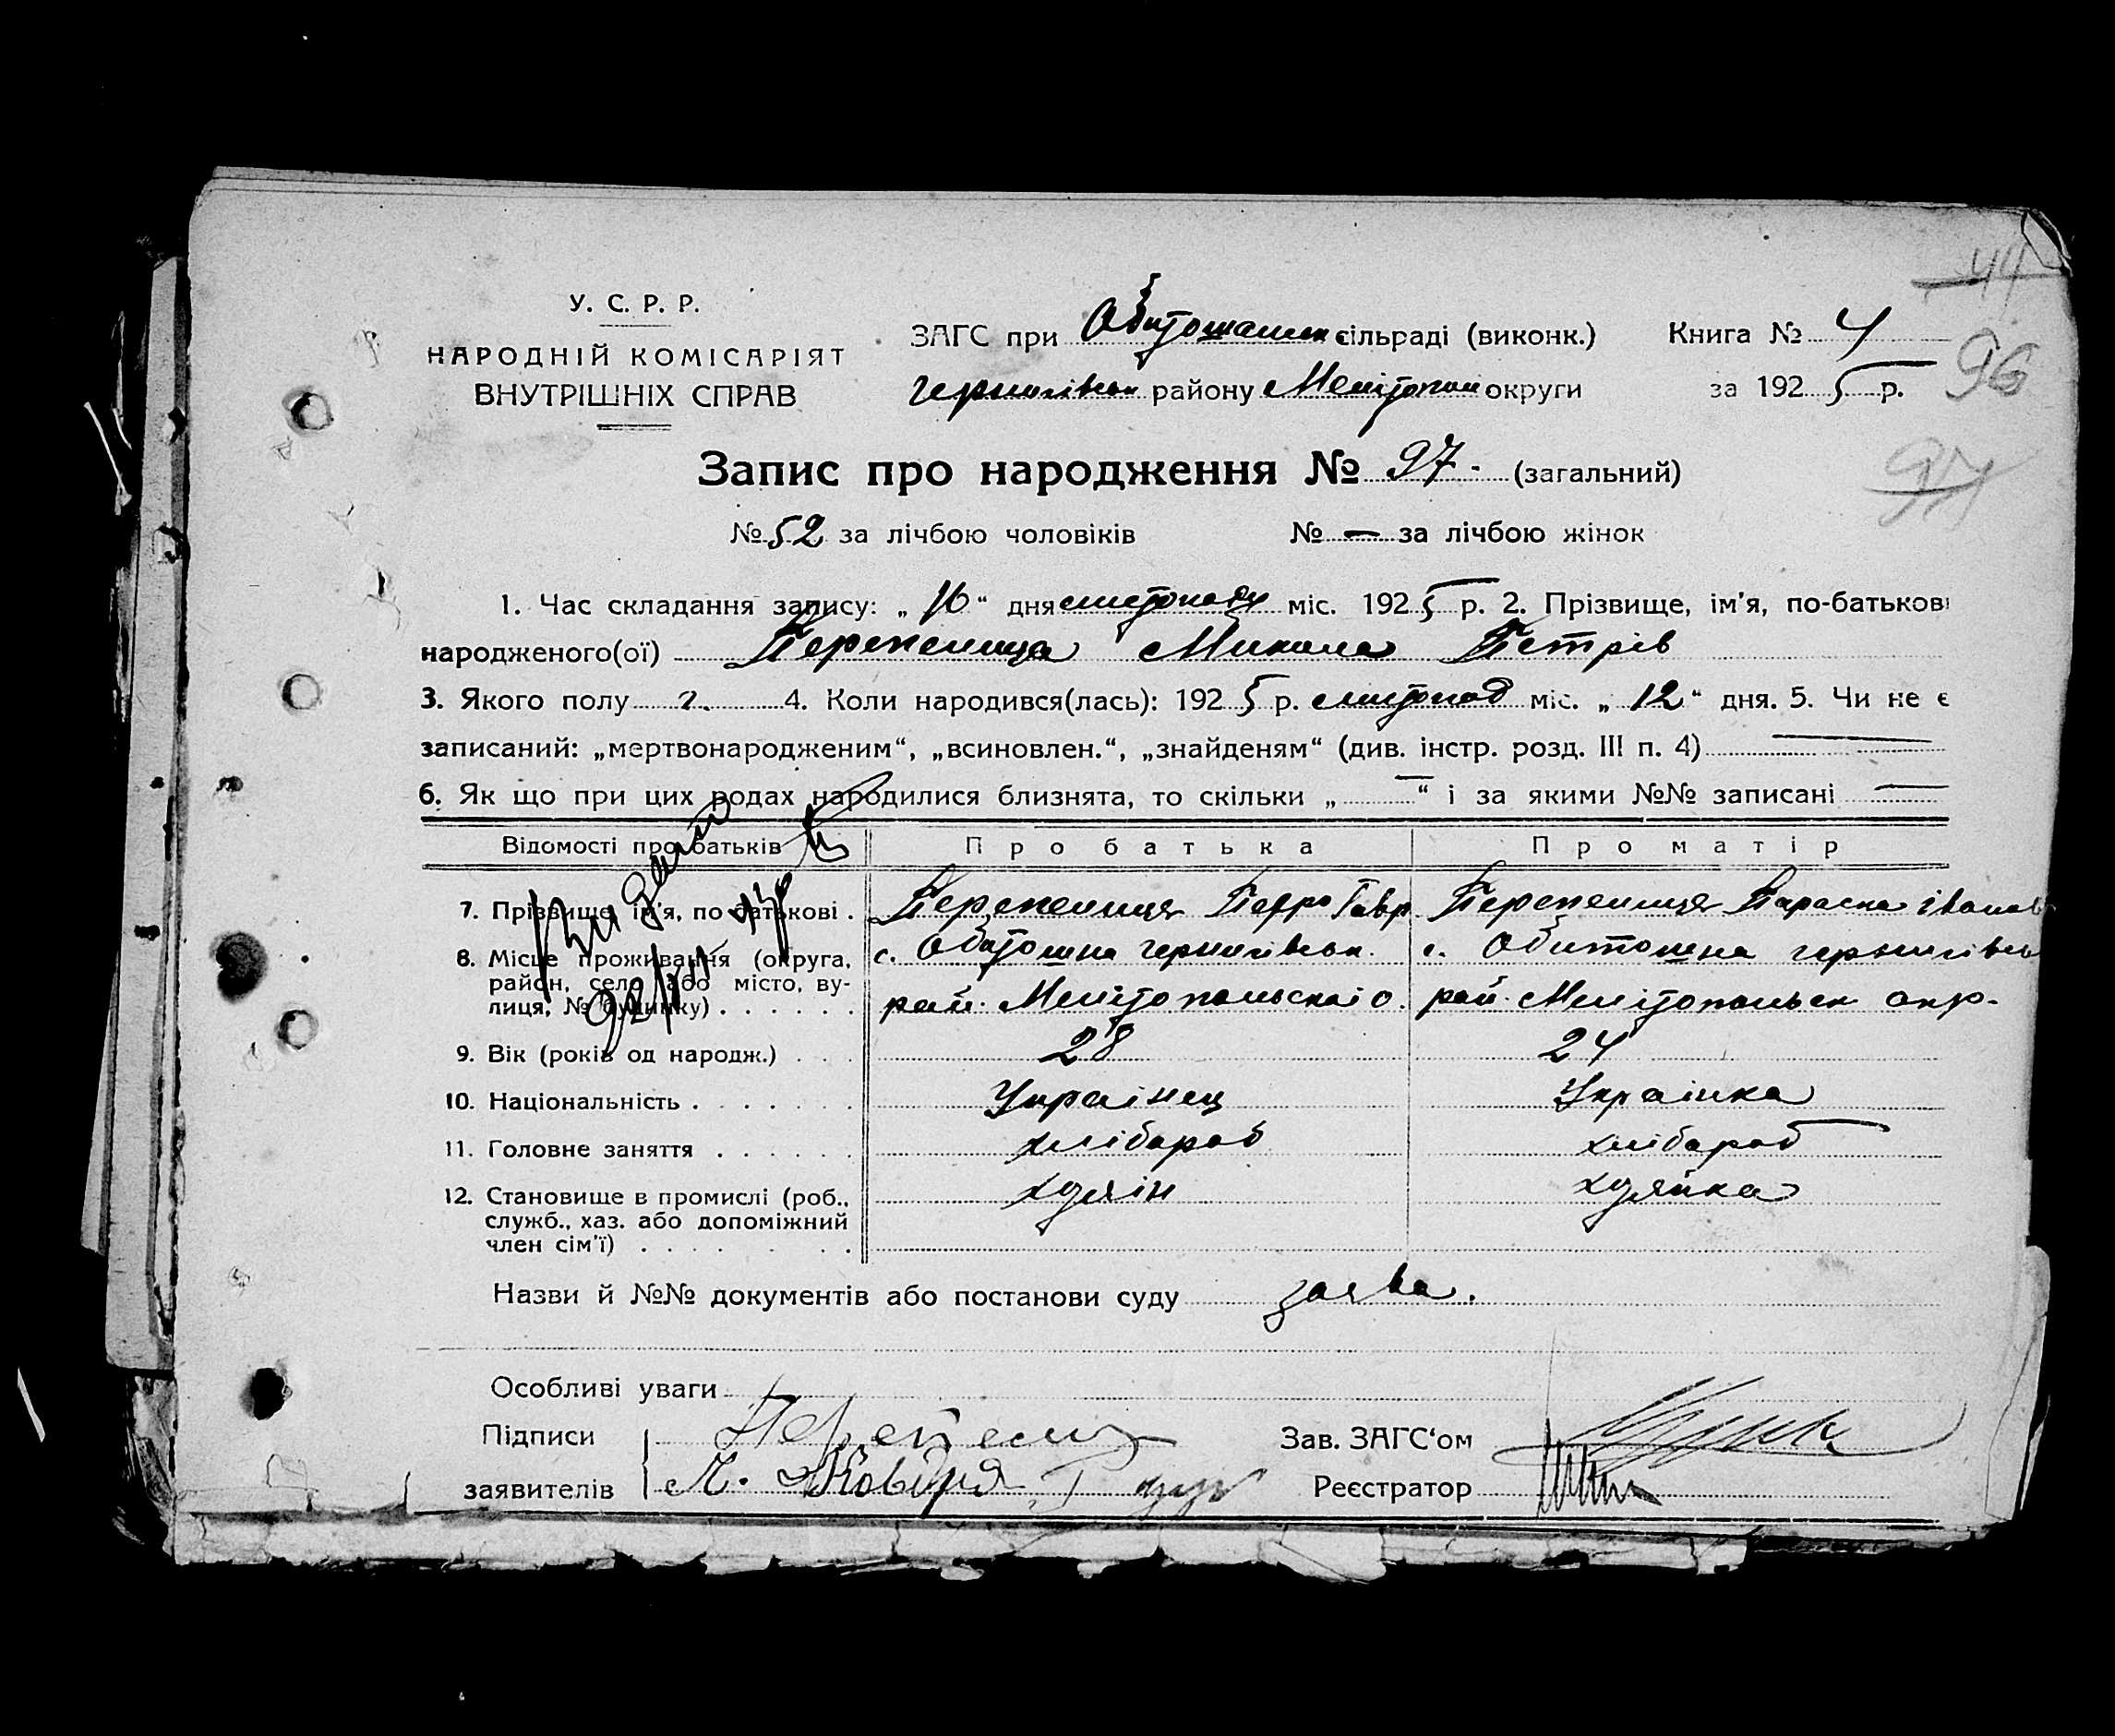 У. С. Р. Р.
НАРОДНІЙ КОМІСАРІЯТ
ВНУТРІШНІХ СПРАВ
ЗАГС при сільраді (виконк.)
району Меліtопол округи
Книга № 4
за 1925 р.
96
Запис про народження № 97 (загальний)
№ 52 за лічбою чоловіків № — за лічбою жінок
1. Час складання запису: „16“ дня листопаду міс. 1925 р. 2. Прізвище, ім'я, по-батькові
народженого(ої) Перепелица Микола Петрів
3. Якого полу ч. 4. Коли народився(лась): 1925 р. листопад міс. „12“ дня. 5. Чи не є
записаний: „мертвонародженим“, „всиновлен.“, „знайденям“ (див. інстр. розд. III п. 4) —
6. Як що при цих родах народилися близнята, то скільки „—“ і за якими №№ записані —
Відомості про батьків Про батька Про матір
7. Прізвище, ім'я, по батькові . Перепелиця Петро Гавр Перепелиця Параска Іванов
8. Місце проживання (округа, с. Обитошна Чернигівськ. с. Обитошна Чернигівськ
район, село або місто, ву-
лиця, № будинку) . . . . . . рай. Мелітопольскаі о. рай. Мелітопольск окр.
9. Вік (років од народж.) . . . 28 24
10. Національність . . . . . . . Українец Українка
11. Головне заняття . . . . . . хлібароб хлібароб
12. Становище в промислі (роб., хузяін хузяйка
служб., хаз. або допоміжний
член сім'ї) . . . . . . .
Назви й №№ документів або постанови суду заява.
Особливі уваги
Підписи
заявителів
Зав. ЗАГС'ом
Реєстратор